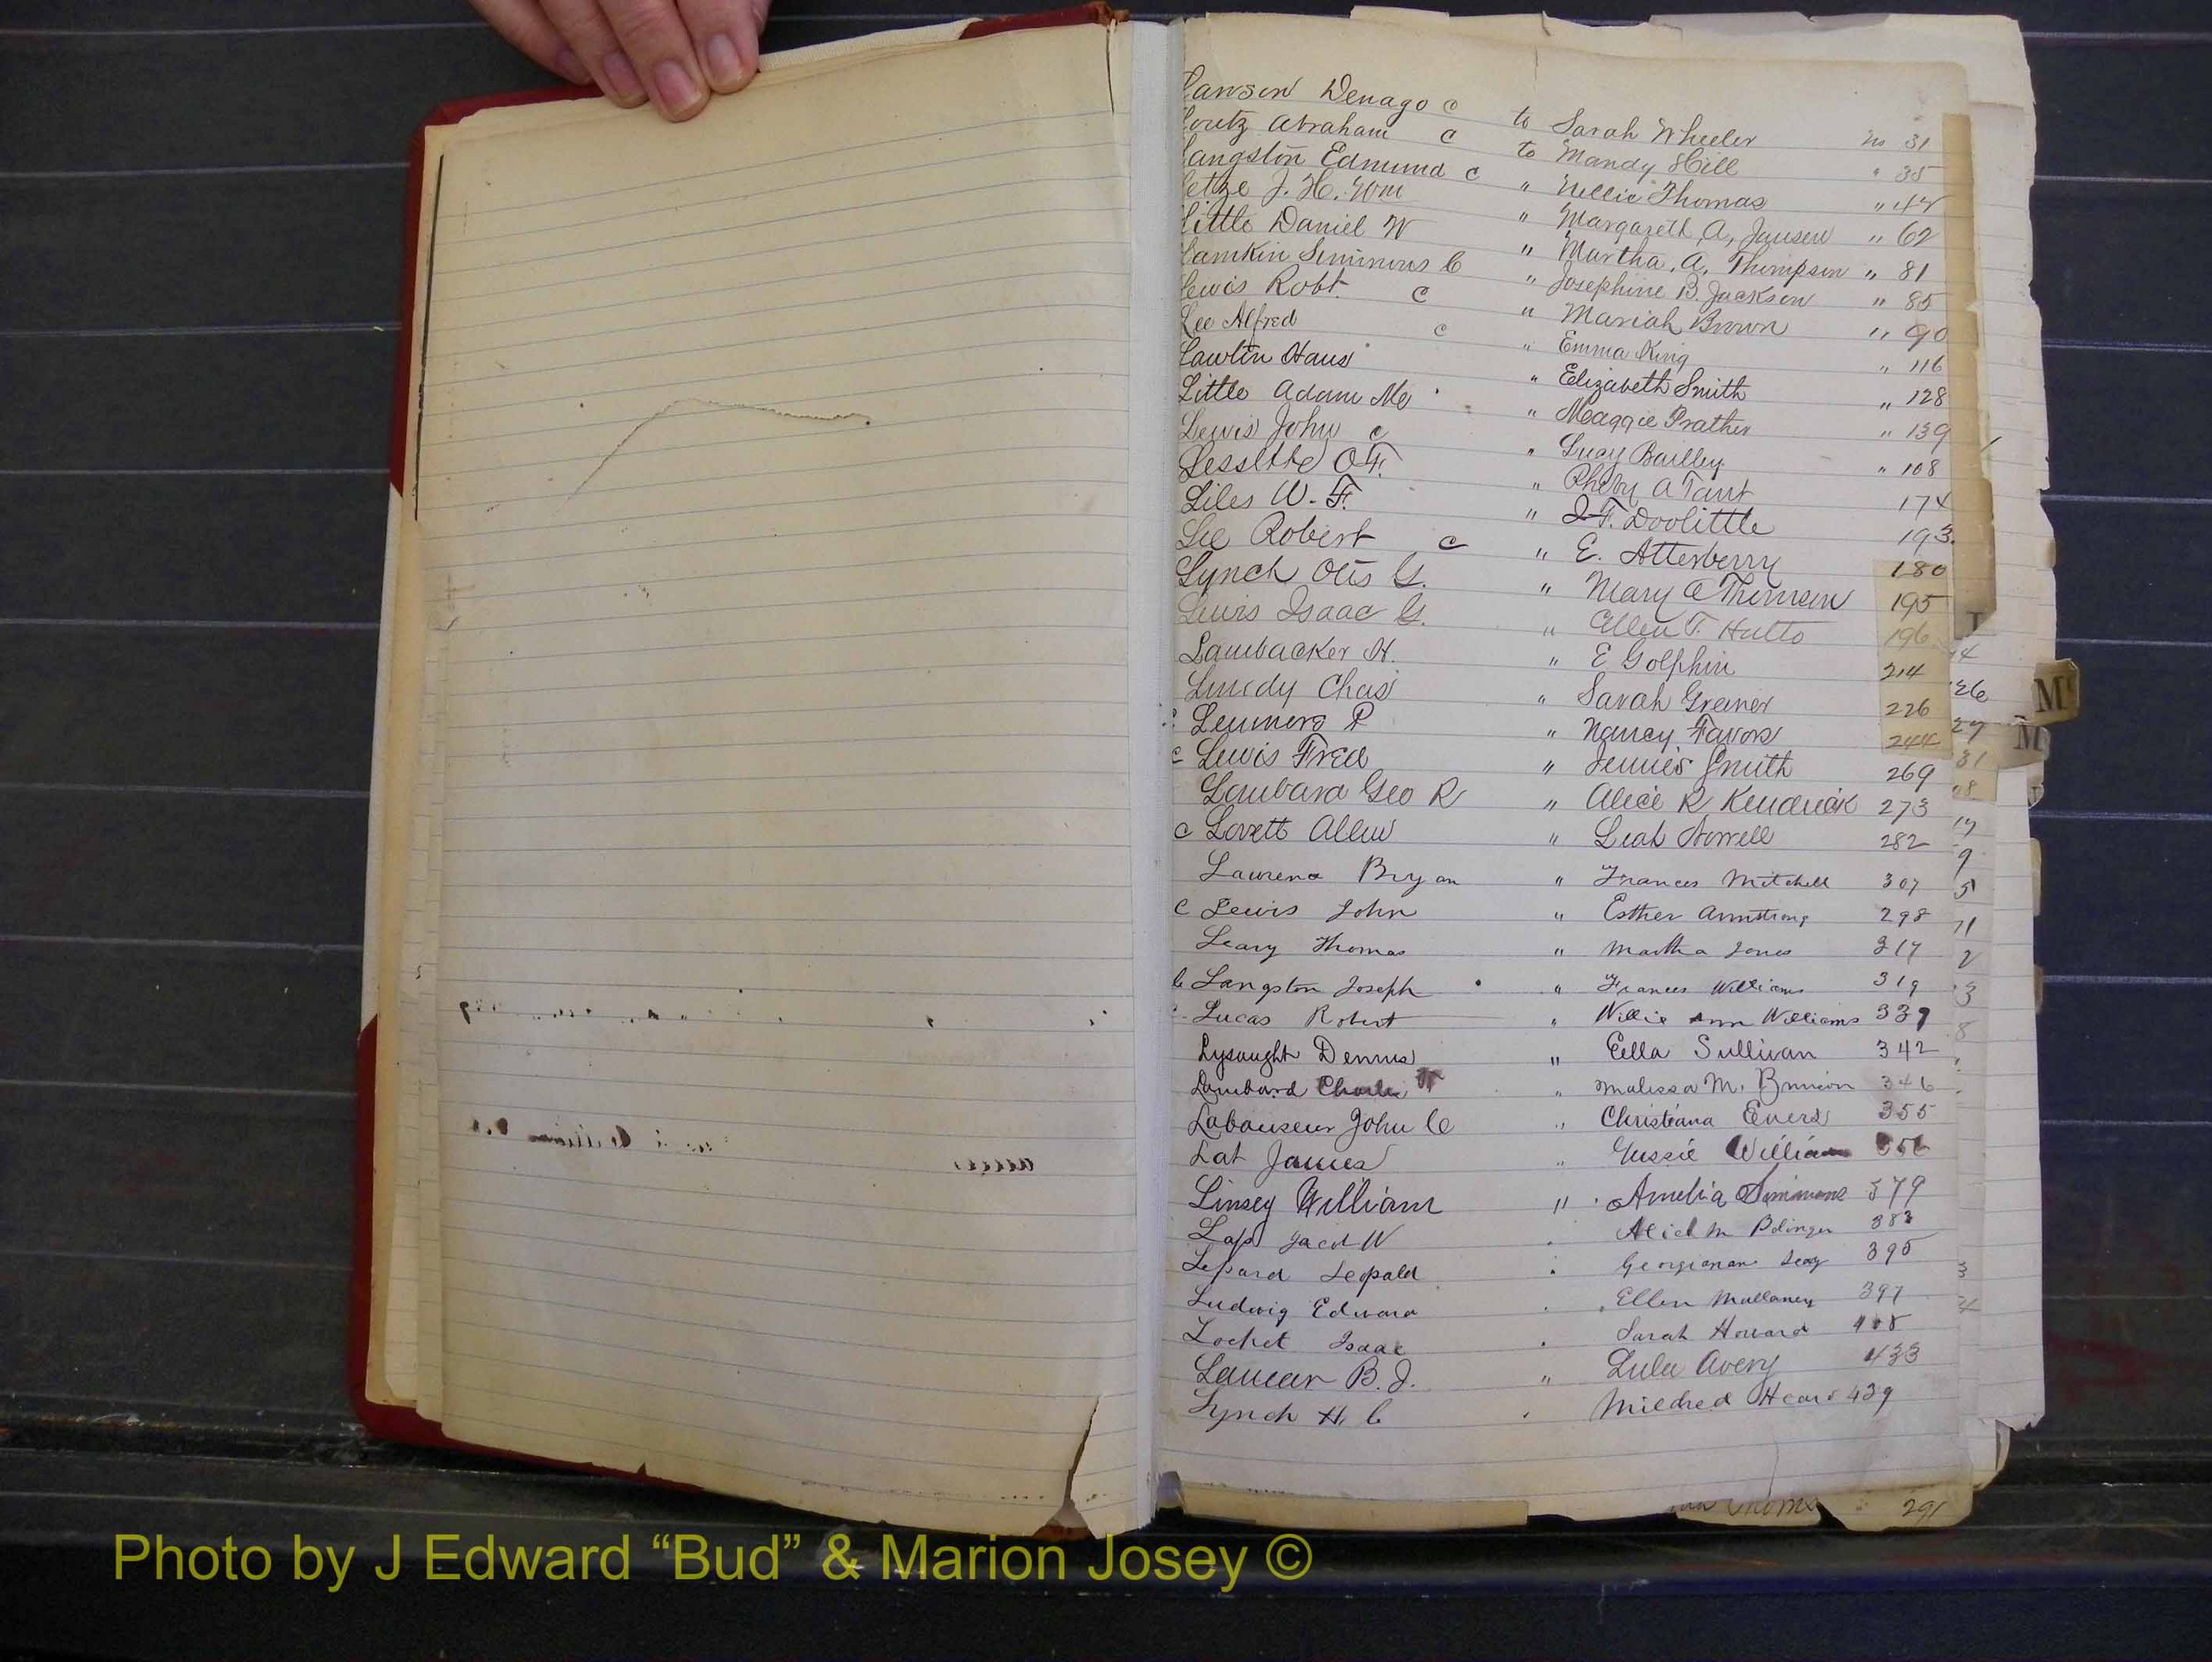 Lawson Denago c to Sarah Wheeler No 31
Loutz Abraham c to Mandy Hill " 35
Langston Edmund c " Nellie Thomas " 42
Letze J. H. Wm " Margareth A, Jansen " 62
Little Daniel W " Martha. A. Thompson " 81
Lamkin Simmons C " Josephine B. Jackson " 85
Lewis Robt. c " Mariah Brown " 90
Lee Alfred c " Emma King " 116
Lawlin Haus " Elizabeth Smith " 128
Little Adam Mc " Maggie Prather " 139
Lewis John c " Lucy Bailley " 108
O.F. " Pheby A Tant 174
Liles W. F. " I. F. Doolittle 193.
Lee Robert c " E. Atterberry 180
Lynch Otis G. " Mary C Thomson 195
Lewis Isaac G. " Ellen T. Hutto 196
Lambacker H. " E Golphin 214
Lundy Chas " Sarah Greiner 226
Lemmons P " Nancy Favors 244
c Lewis Fred " Jennie Smith 269
Lombard Geo R " Alice R Kendrick 273
c Lovett Allen " Leah Howell 282
Lawrence Bryan " Frances Mitchell 307
c Lewis John " Esther Armstrong 298
Leary Thomas " Martha Jones 317
c Langston Joseph " Frances Williams 319
Lucas Robert " Willie Ann Williams 339
Lysaught Dennis " Ella Sullivan 342
Lombard Charlie " Malissa M. 346
Labouseur John C " Christiana Evers 355
Lat James " Gussie William
Linsey William " Amelia Simmons 379
Lap Jacob W " Alice M 383
Lepard Leopald " Georgianan Seay 395
Ludwig Edward " Ellen Mullaney 397
Locket Isaac " Sarah Howard 408
B. J. " Lula Avery 433
Lynch H. C " Mildred Heard 439
291
M
M
Photo by J Edward “Bud” & Marion Josey ©